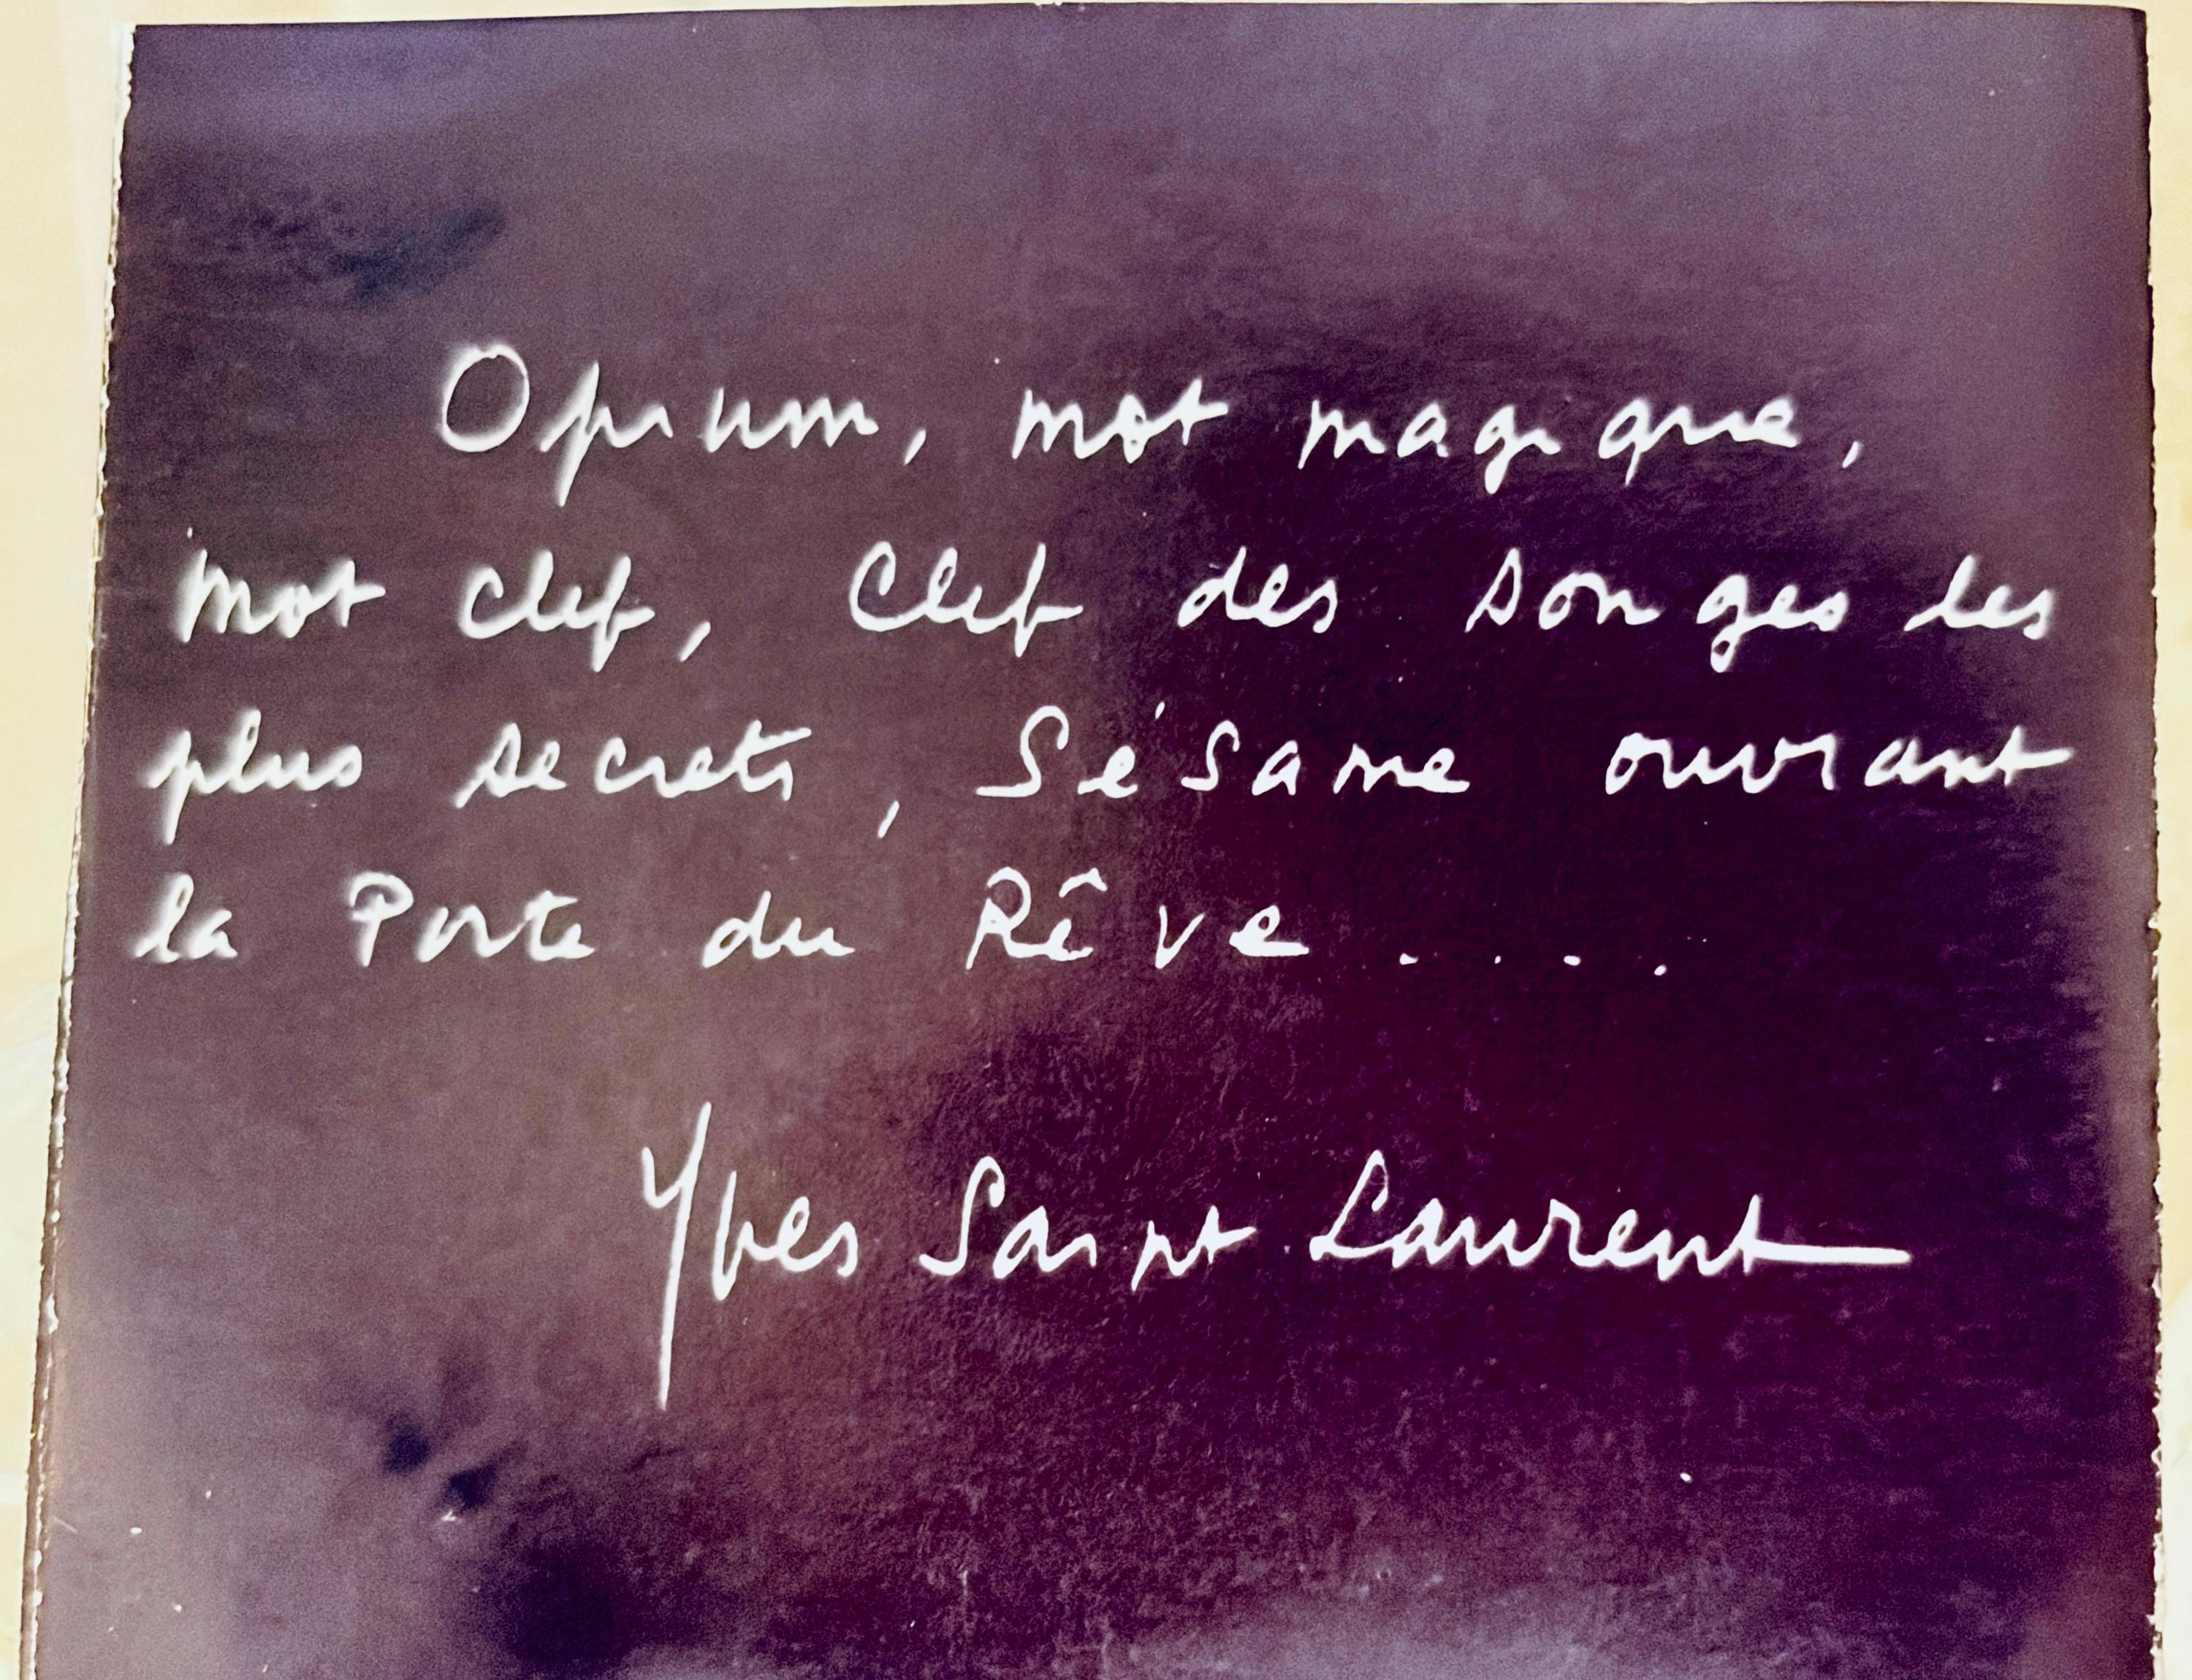 Opium, mot magique,
mot clef, Clef des songes les
plus secrets, Sésame ouvrant
la Porte du Rêve....
Yves Saint Laurent